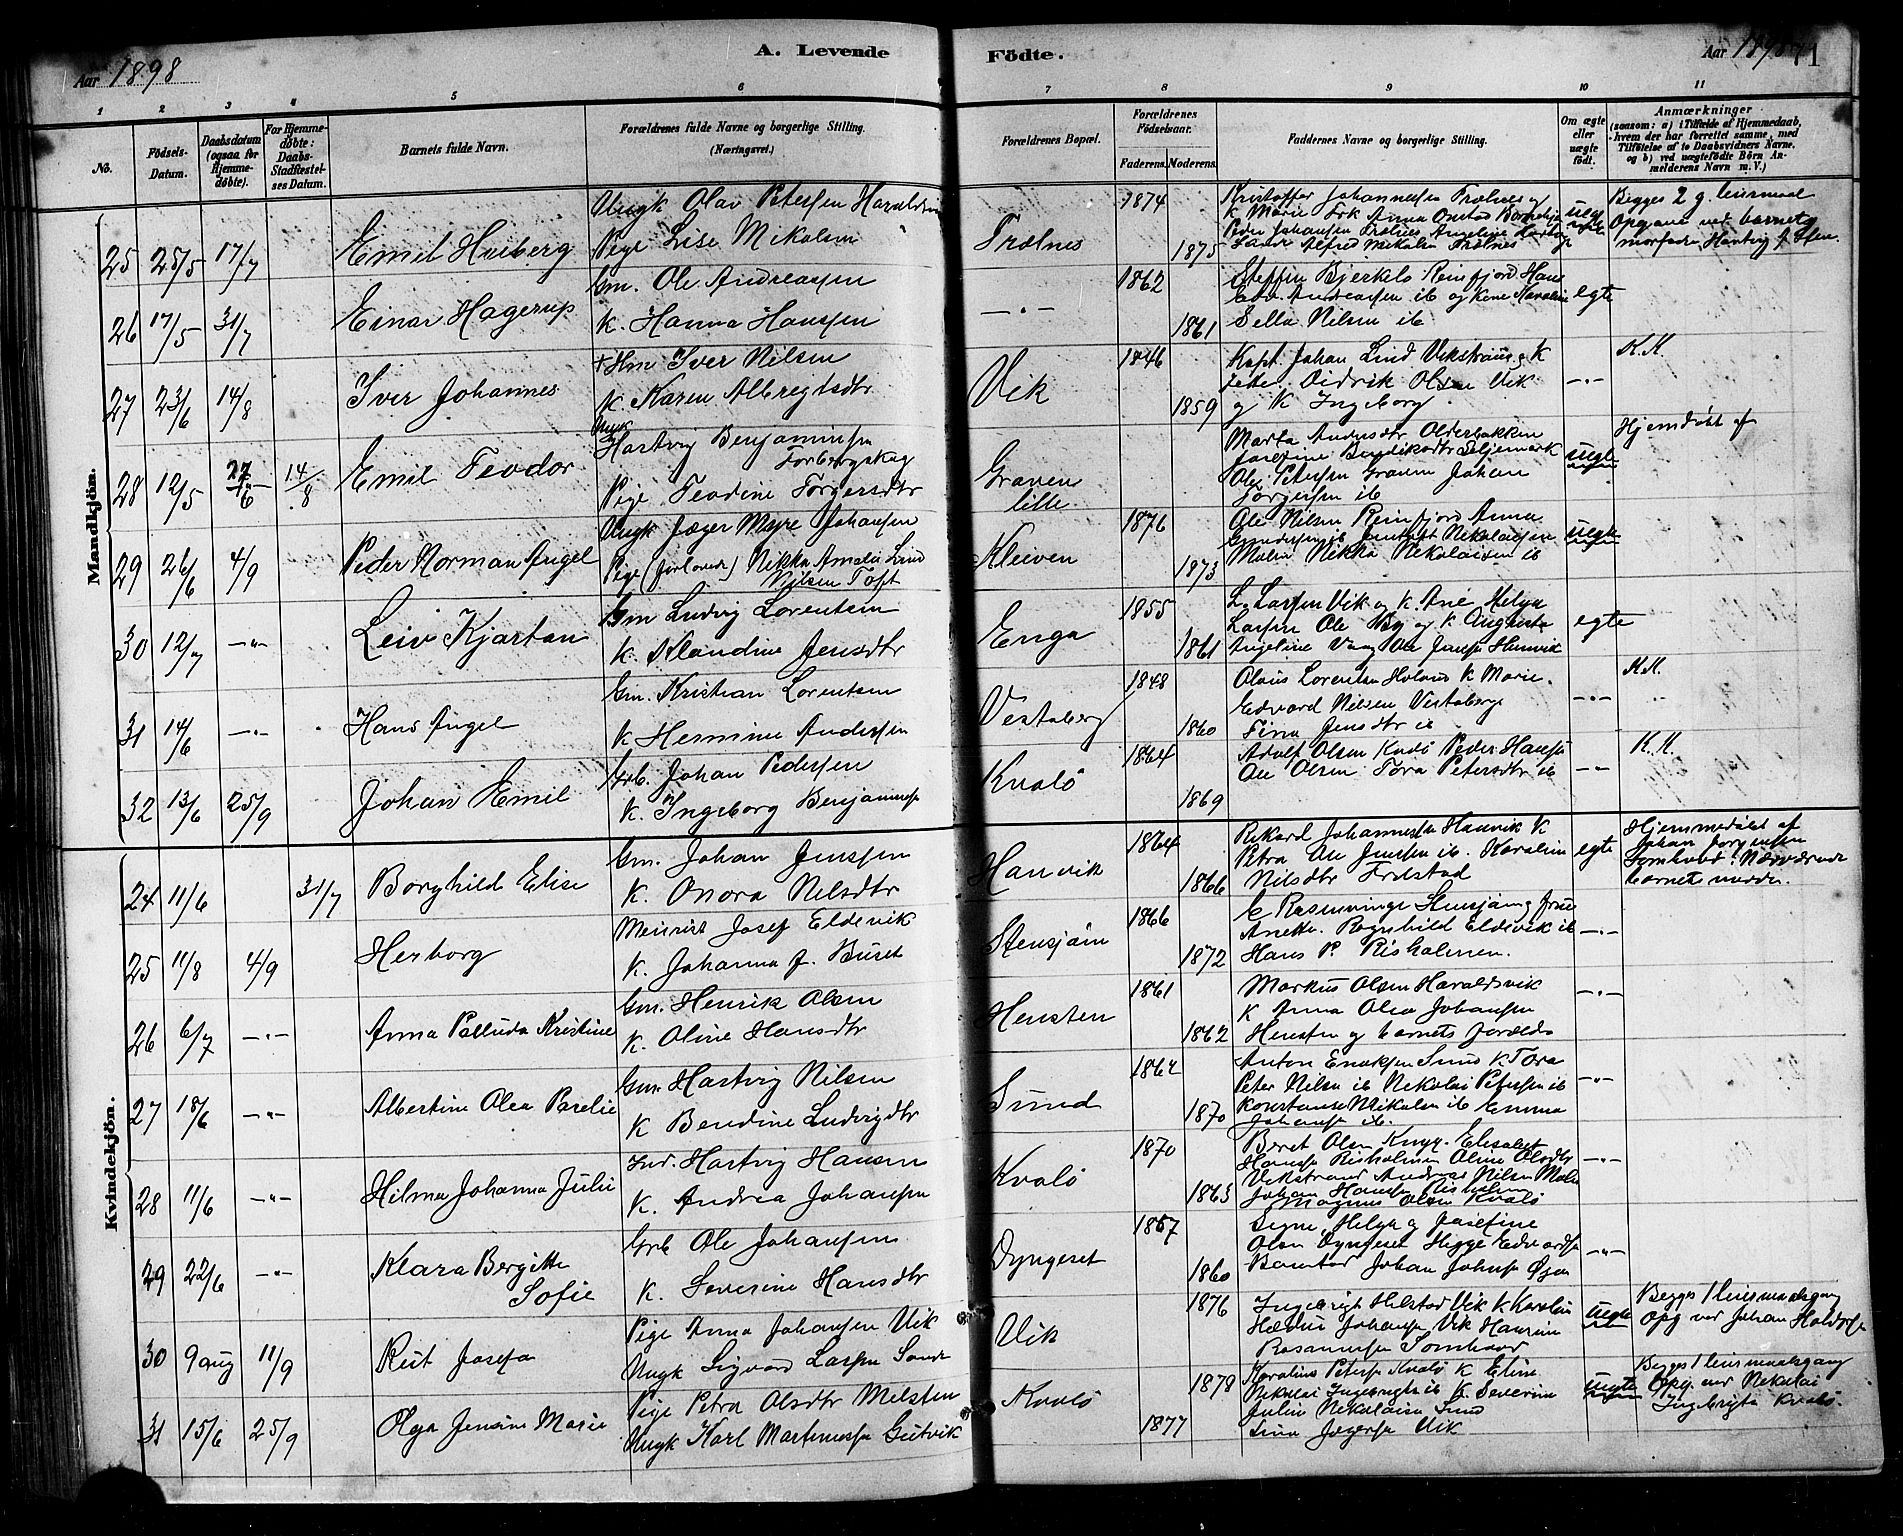 Aar 1898
A. Levende
Födte.
Aar 1898
71
1 2 3 4 5 6 7 8 9 10 11
No.
Födsels-Datum.
Daabsdatum (ogsaa for Hjemmedöbte).
For Hjemmedöbte: Daabs-Stadfestelses Datum.
Barnets fulde Navn.
Forældrenes fulde Navne og borgerlige Stilling. (Næringsvei.)
Forældrenes Bopæl.
Forældrenes Födselsaar.
Faderens. Moderens.
Faddernes Navne og borgerlige Stilling.
Om ægte eller uægte født.
Anmærkninger
(saasom: a) i Tilfælde af Hjemmedaab, hvem der har forrettet samme, med Tilföielse af to Daabsvidners Navne, og b) ved uægtefödte Börn Anmelderens Navn m. V.)
Mandkjön.
25 25/5 17/7 Emil Heiberg
Ungk Olav Petersen Haraldsvi
Pige Lise Mikalsen
Trælnes 1874 1875
Kristoffer Johannessen Trælnes og
K Marie Frk Anna Onstad
Peder Johansen Trælnes Angeline
Alfred Mikalsen Trælnes
uegte
Begges 2 g. leiermaal
Opgave ved barnets
morfader Hartvig
26 17/5 31/7 Einar Hagerup
Gm. Ole Andreassen
K. Hanna Hanssen
—"— 1862 1861
Steffen Bjerkelo Reinfjord Hans
Edv. Andreassen ib og Kone Karoline
Sella Nilsen ib
egte
27 23/6 14/8 Iver Johannes
+ Hm Iver Nilsen
K. Karen Albregtsdtr
Vik 1846 1859
Kapt Johan Lind Vikstrøm, K
Jette. Didrik Olsen Vik
og K Ingeborg.
—"—
K.K.
28 12/5 27/6 14/8 Emil Teodor
Ungk
Hartvig Benjaminsen
Torbergskag
Pige Teodine Torgersdtr
Graven lille
Marta Andersdtr Olderbakken
Josefine Bendiksdtr Seljemark
Ole Petersen Graven Johan
Torgersen ib
uegte
Hjemdøbt af
29 26/6 4/9 Peder Norman Angel
Ungk Jæger Myre Johansen
Pige (forlovede) Nikka Amalie Lind
Nilsen Toft
Kleiven 1876 1873
Ole Nilsen Reinfjord Anna
Gundersen ib Nikolaisen
Malm Nikka Nikolaisen ib
uegte
30 12/7 —"— Leiv Kjartan
Gm Ludvig Lorentsen
K. Klaudine Jensdtr
Enga 1855 1861
L. Larsen Vik og K. Ane Helga
Larsen Ole By og K Augusta
Angeline Vaag Ole Jensen Hamvik
egte
31 14/6 —"— Hans Angel
Gm. Kristian Lorentsen
K Hermine Andersen
Vestaberg 1848 1860
Olaus Lorentsen Holand K Marie.
Edvard Nilsen Vestaberg
Fina Jensdtr ib
—"—
K.K.
32 13/6 25/9 Johan Emil
Grb. Johan Pedersen
K. Ingeborg Benjaminsen
Kvalö 1864 1869
Adolf Olsen Kvalö Peder Hansen
Ole Olsen Tora Petersdtr ib
—"—
K.K.
Kvindekjön.
24 11/6 31/7 Borghild Elise
Gm. Johan Jenssen
K. Onora Nilsdtr
Hamvik 1864 1866
Rikard Johannessen Hamvik K
Petra Ole Jenssen ib. Karoline
Nilsdtr Frelstad
egte
Hjemmedøbt af
Johan Jørgensen
Somhovd. Nærværende
barnets moder.
25 11/8 4/9 Herborg
Meierist Josef Eldevik
K. Johanna f. Buset
Stensjöen 1866 1872
E Rosenvinge Stensjöen og frue
Anette. Ragnhild Eldevik ib
Hans P. Risholmen.
—"—
26 6/7 —"— Anna Palluda Kristine
Gm. Henrik Olsen
K. Oline Hansdtr
Hensten 1861 1862
Markus Olsen Haraldsvik
K Anna Olea Johansen
Hensten og barnets forældre
—"—
27 18/6 —"— Albertine Olea Parelie
Gm. Hartvig Nilsen
K Bendine Ludvigdtr
Sund 1864 1870
Anton Enoksen Sund K. Tora
Peter Nilsen ib Nikolai Petersen ib
Konstanse Mikalsen ib Emma
Johansen ib.
—"—
28 11/6 —"— Hilma Johanna Julie
Ind. Hartvig Hansen
K. Andrea Johansen
Kvalö 1870 1863
Beret Olsen Elisabet
Hansen Risholmen Oline Olsdtr
Vikstrand Andreas Nilsen Malm
Johan Hansen Risholmen
Magnus Olsen Kvalö
—"—
29 22/6 —"— Klara Bergitte
Sofie
Grb Ole Johansen
K. Severine Hansdtr
Dyngeset 1867 1860
Signe Helga og Josefine
Olsen Dyngeset Higge Edvardsen
Johan Johnsen
—"—
30 9 aug 11/9 Rut Josefa
Pige Anna Johansen Vik
Ungk Sigvard Larsen Sande
Vik 1876
Ingebrigt Helstad Vik K Karoline
Hedvig Johansen Vik Hansine
Rosannessen Somhovd
uegte
Begges 1 leiermaalsgang
Opg ved Johan Haldorsen
31 15/6 25/9 Olga Jensine Marie
Pige Petra Olsdtr Melsten
Ungk Karl Martinussen Gutvik
Kvalö 1877 1878
Karolius Petersen Kvalö K Eline
Nikolai Ingebrigtsen ib K. Severine
Julie Nikolaisen Sund
Lina Jægersen Vik
uegte
Begges 1 leiermaalsgang
Opg. ved Nikolai
Ingebrigtsen Kvalö.